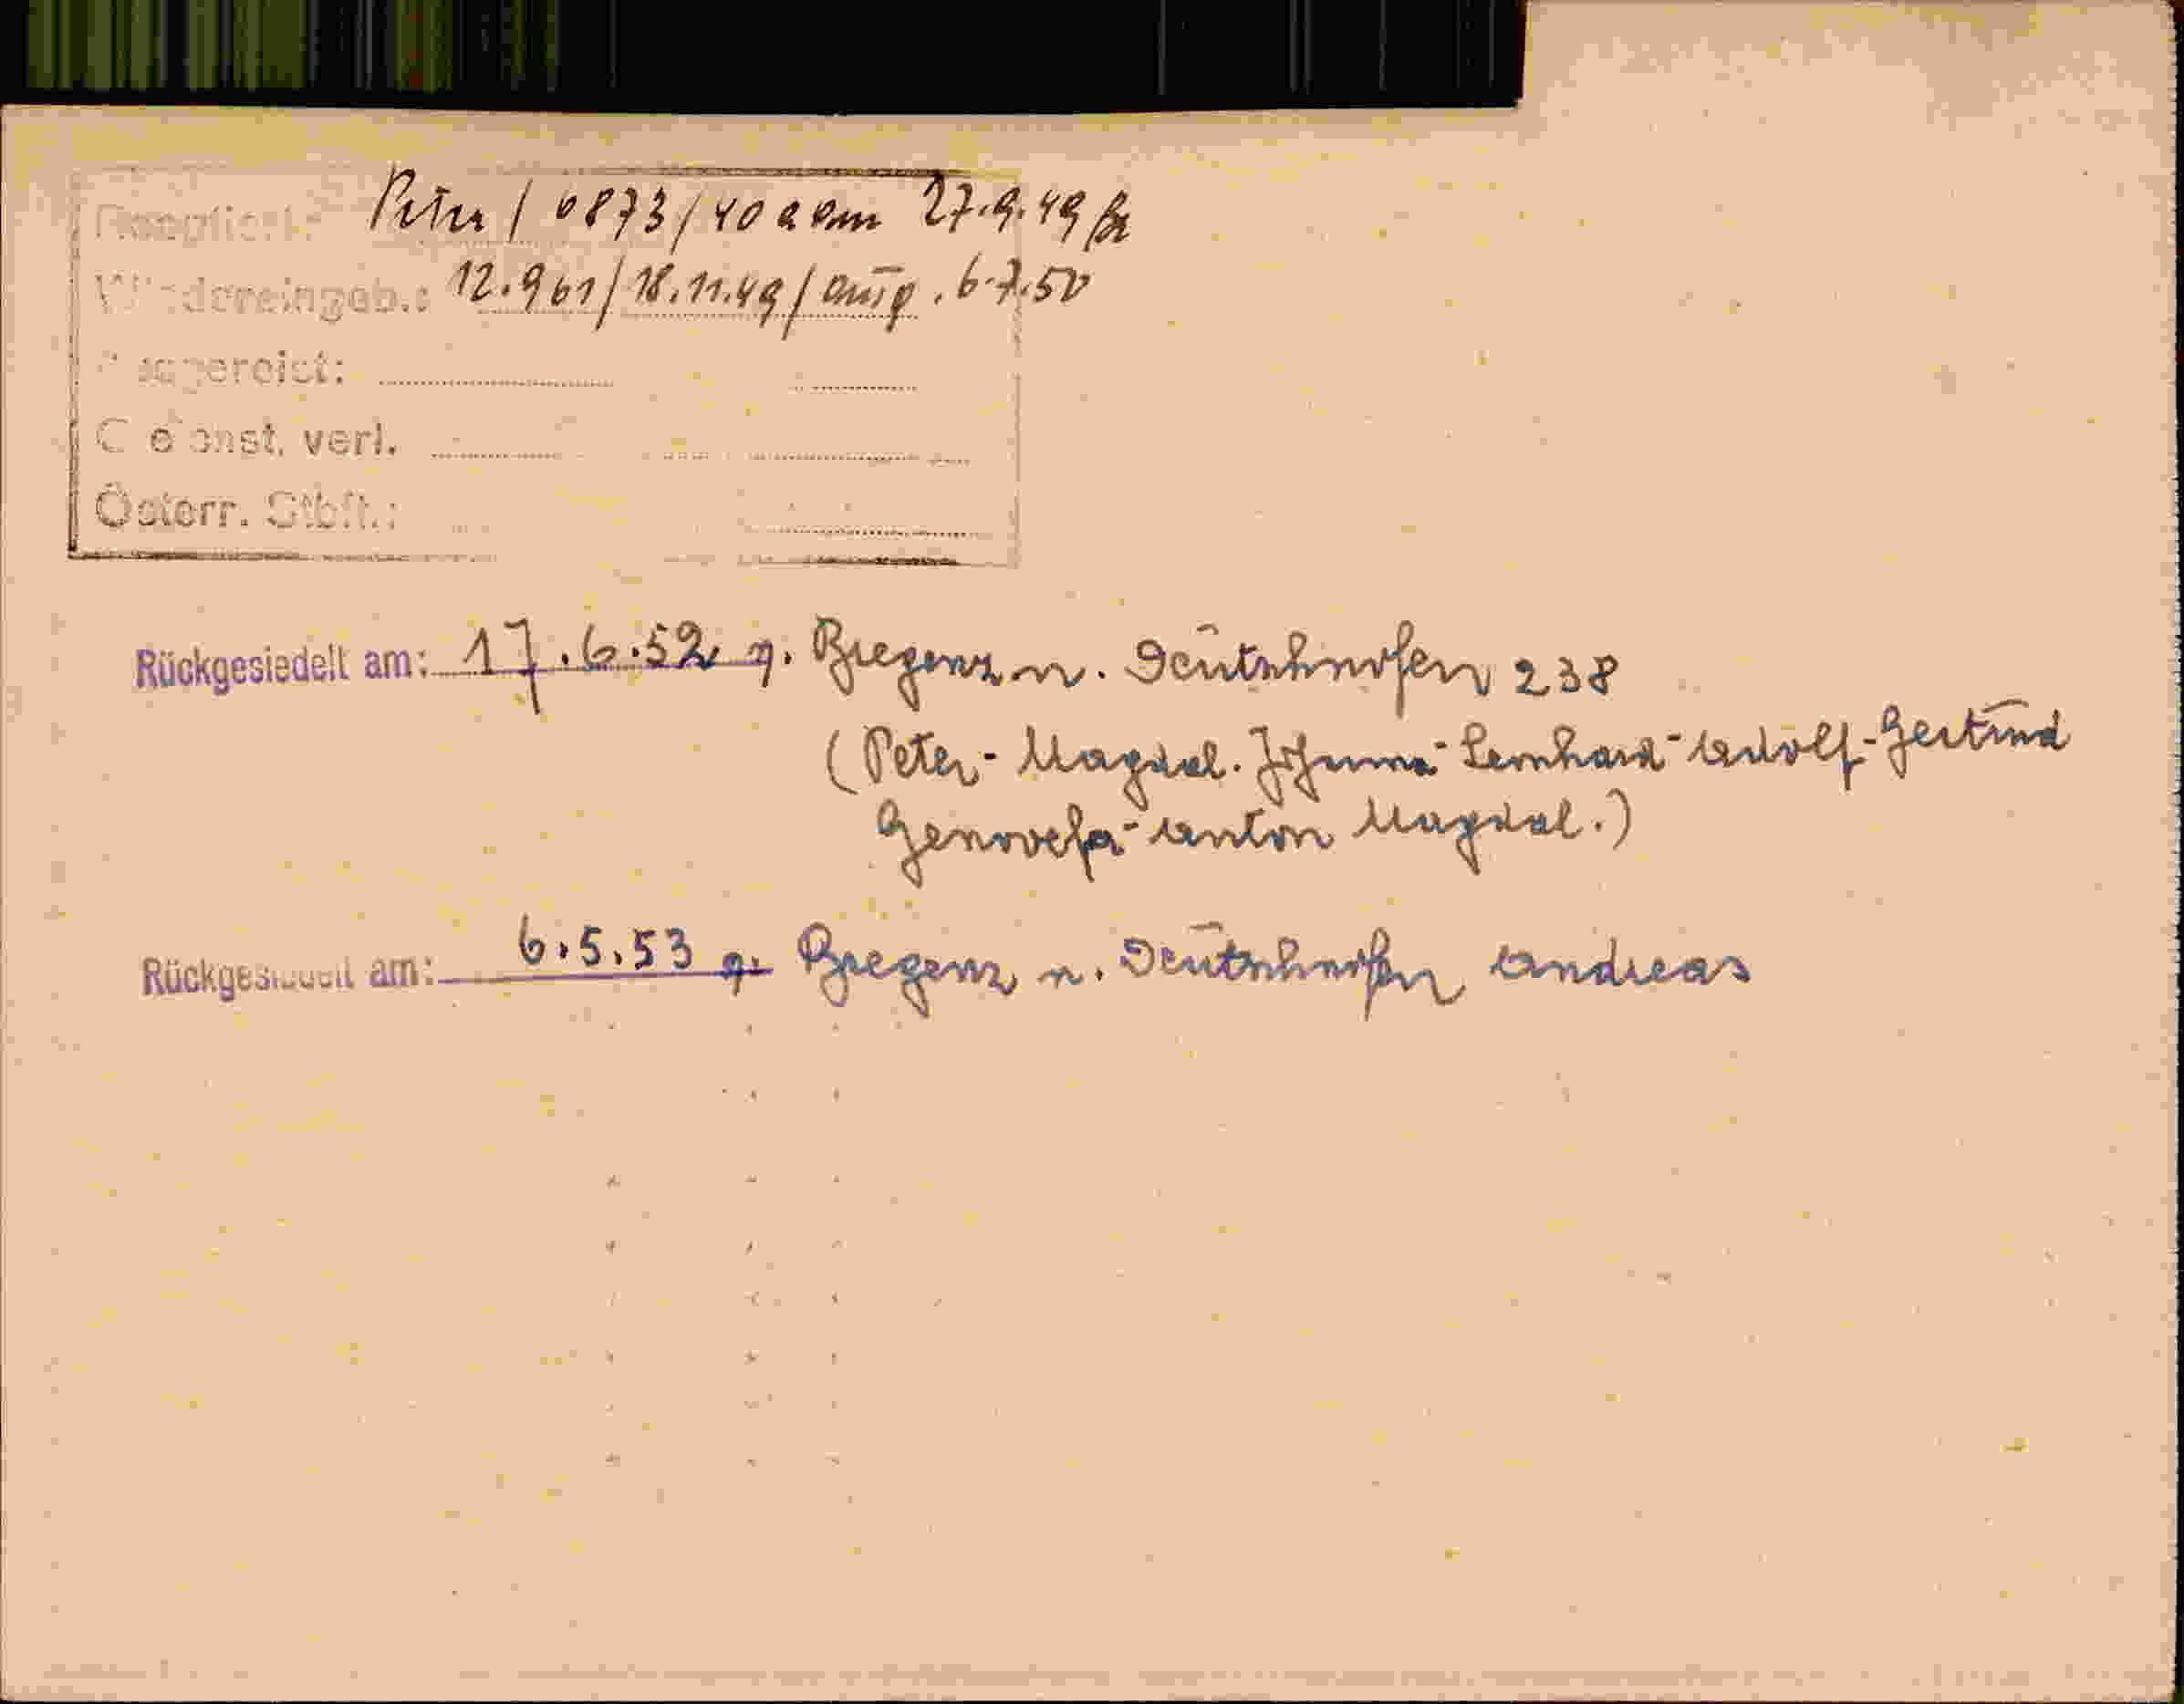 Reoptiert: Peter / 6873/40 a am 27.9.49
Wiedereingeb.: 12.961/18.11.49/ausg. 6.7.50
Ausgereist:
verl.
Österr. Stbft.:
Rückgesiedelt am: 17.6.52 v. Bregenz n. Deutschnofen 238
(Peter - Magdal. Johanna - Leonhard - Adolf - Gertrud
Genovefa - Anton Magdal.)
Rückgesiedelt am: 6.5.53 v. Bregenz n. Deutschnofen Andreas